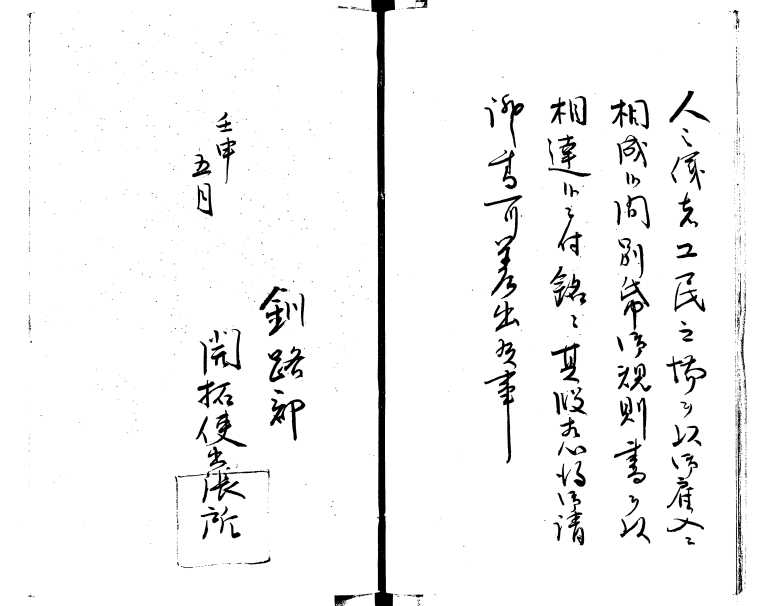 人之儀者工民之場ヲ以御雇入ニ
相成候間別帋御規則書ヲ以
相達候ニ付銘々其段相心得御請
御書可差出候事
壬申
五月
釧路郡
開拓使出張所